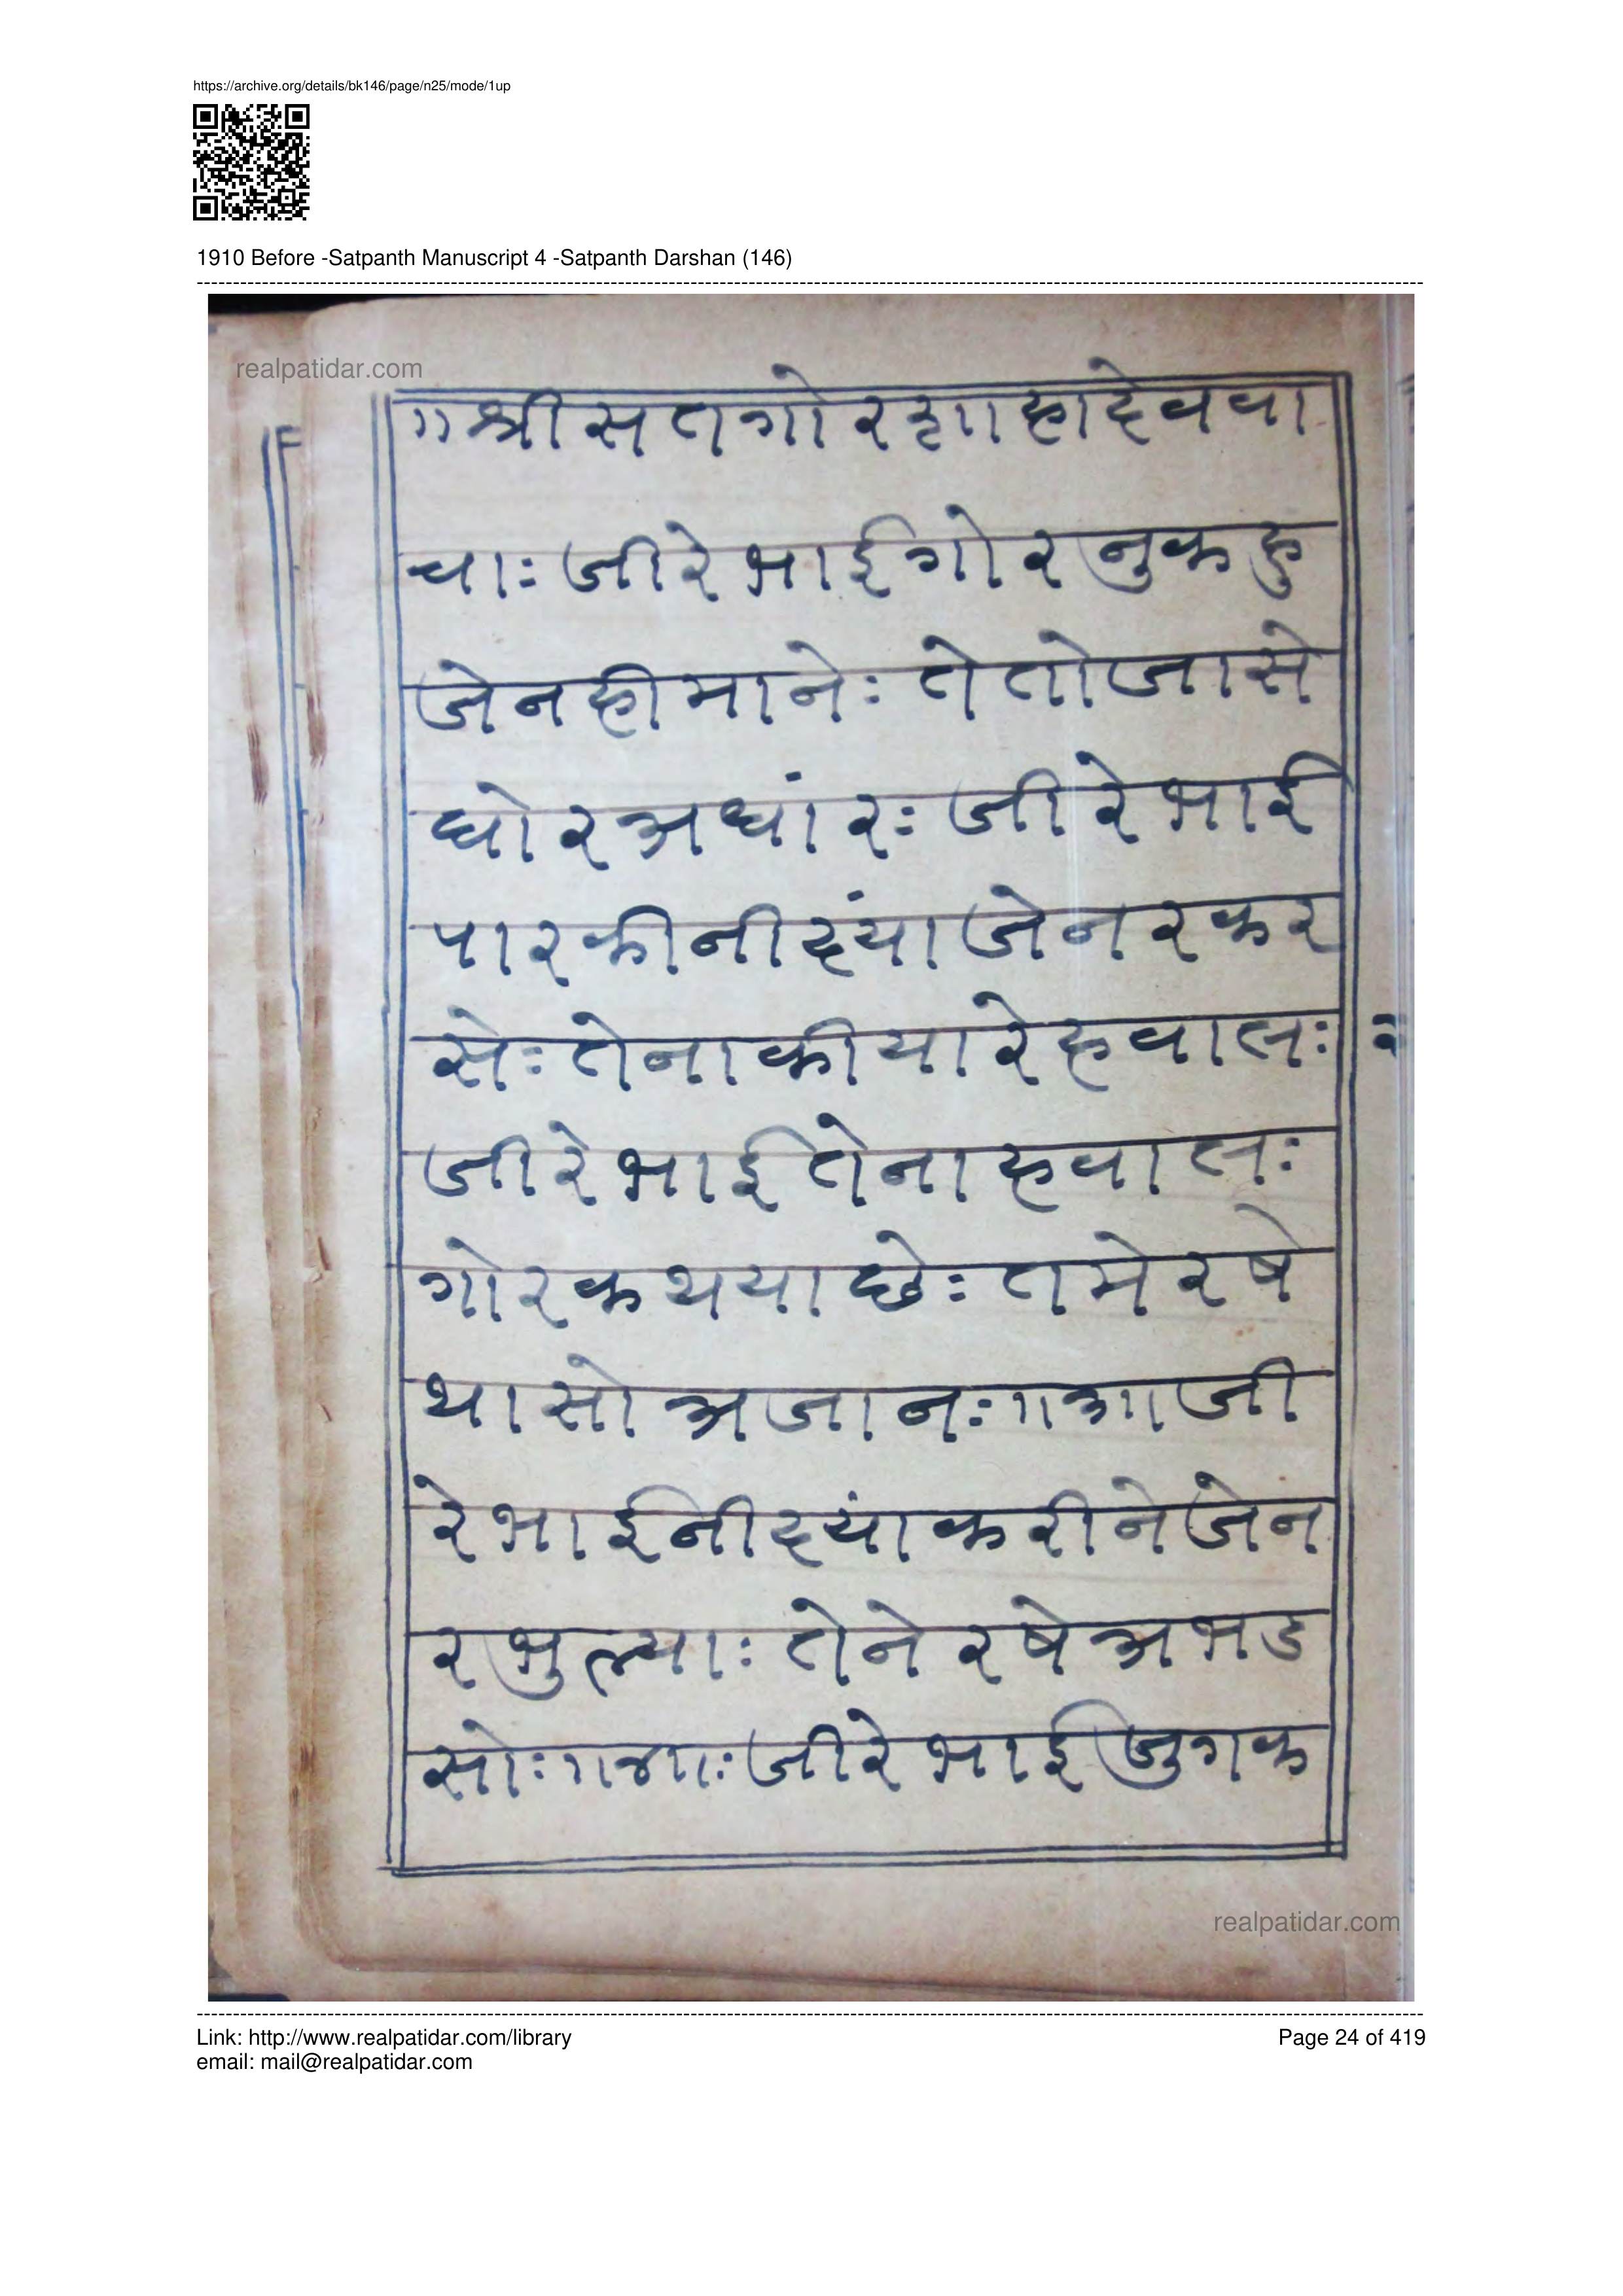 https://archive.org/details/bk146/page/n25/mode/1up
1910 Before -Satpanth Manuscript 4 -Satpanth Darshan (146)
realpatidar.com
॥श्रीसतगोर शाहादेववा
चाः जीरेभाईगोरनुकहु
जेनहीमानेः तेतोजासे
घोरअधांरः जीरेभाई
पारकीनीद्यांजेनरकर
सेः तेनाकीयारेहवालः
जीरेभाईतेनाहवालः
गोरकथयाछेः तमेरषे
थासोअजानः॥३॥जी
रेभाईनीद्यांकरीनेजेन
रभुल्याः तेनेरषेअभड
सोः॥४॥ः जीरेभाईजुगक
realpatidar.com
Link: http://www.realpatidar.com/library
email: mail@realpatidar.com
Page 24 of 419